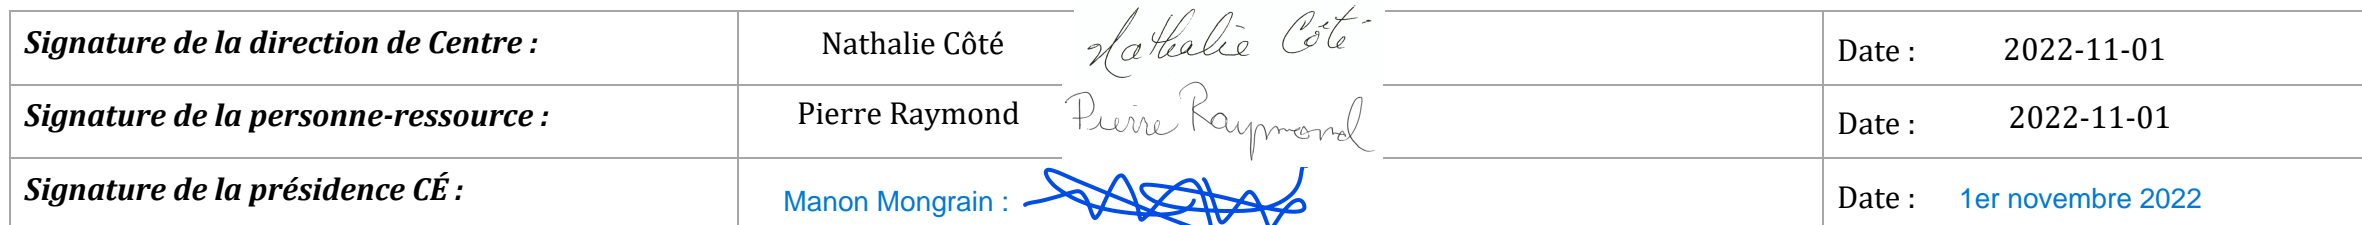 Signature de la direction de Centre : Nathalie Côté Nathalie Côté Date : 2022-11-01
Signature de la personne-ressource : Pierre Raymond Pierre Raymond Date : 2022-11-01
Signature de la présidence CÉ : Manon Mongrain : Date : 1er novembre 2022